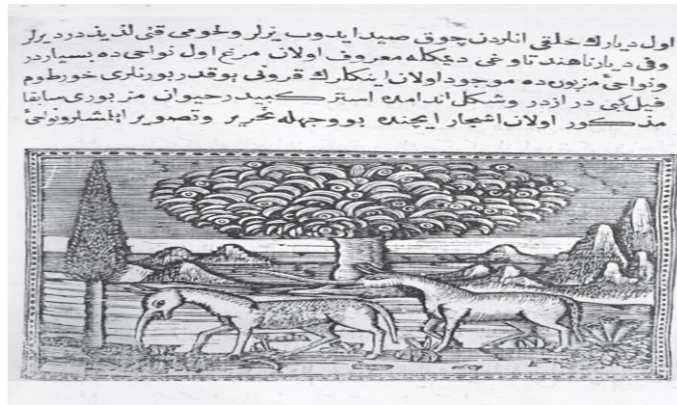 اول ديارك خلقى انلردن چوق صيد ايدوب يرلر ولحومى قتى لذيذدر ديرلر
وفى ديارنا هند تاوغى ديمكله معروف اولان مرغ اول نواحى ده بسياردر
ونواحئ مزبورده موجود اولان اينكلرك قرونى يوقدر بورنلرى خورطوم
فيل كبى درازدر وشكل اندامده استر كبيدر حيوان مزبورى سابقا
مذكور اولان اشجار ايچنده بو وجهله تحرير وتصوير ايلمشلر ونواحئ